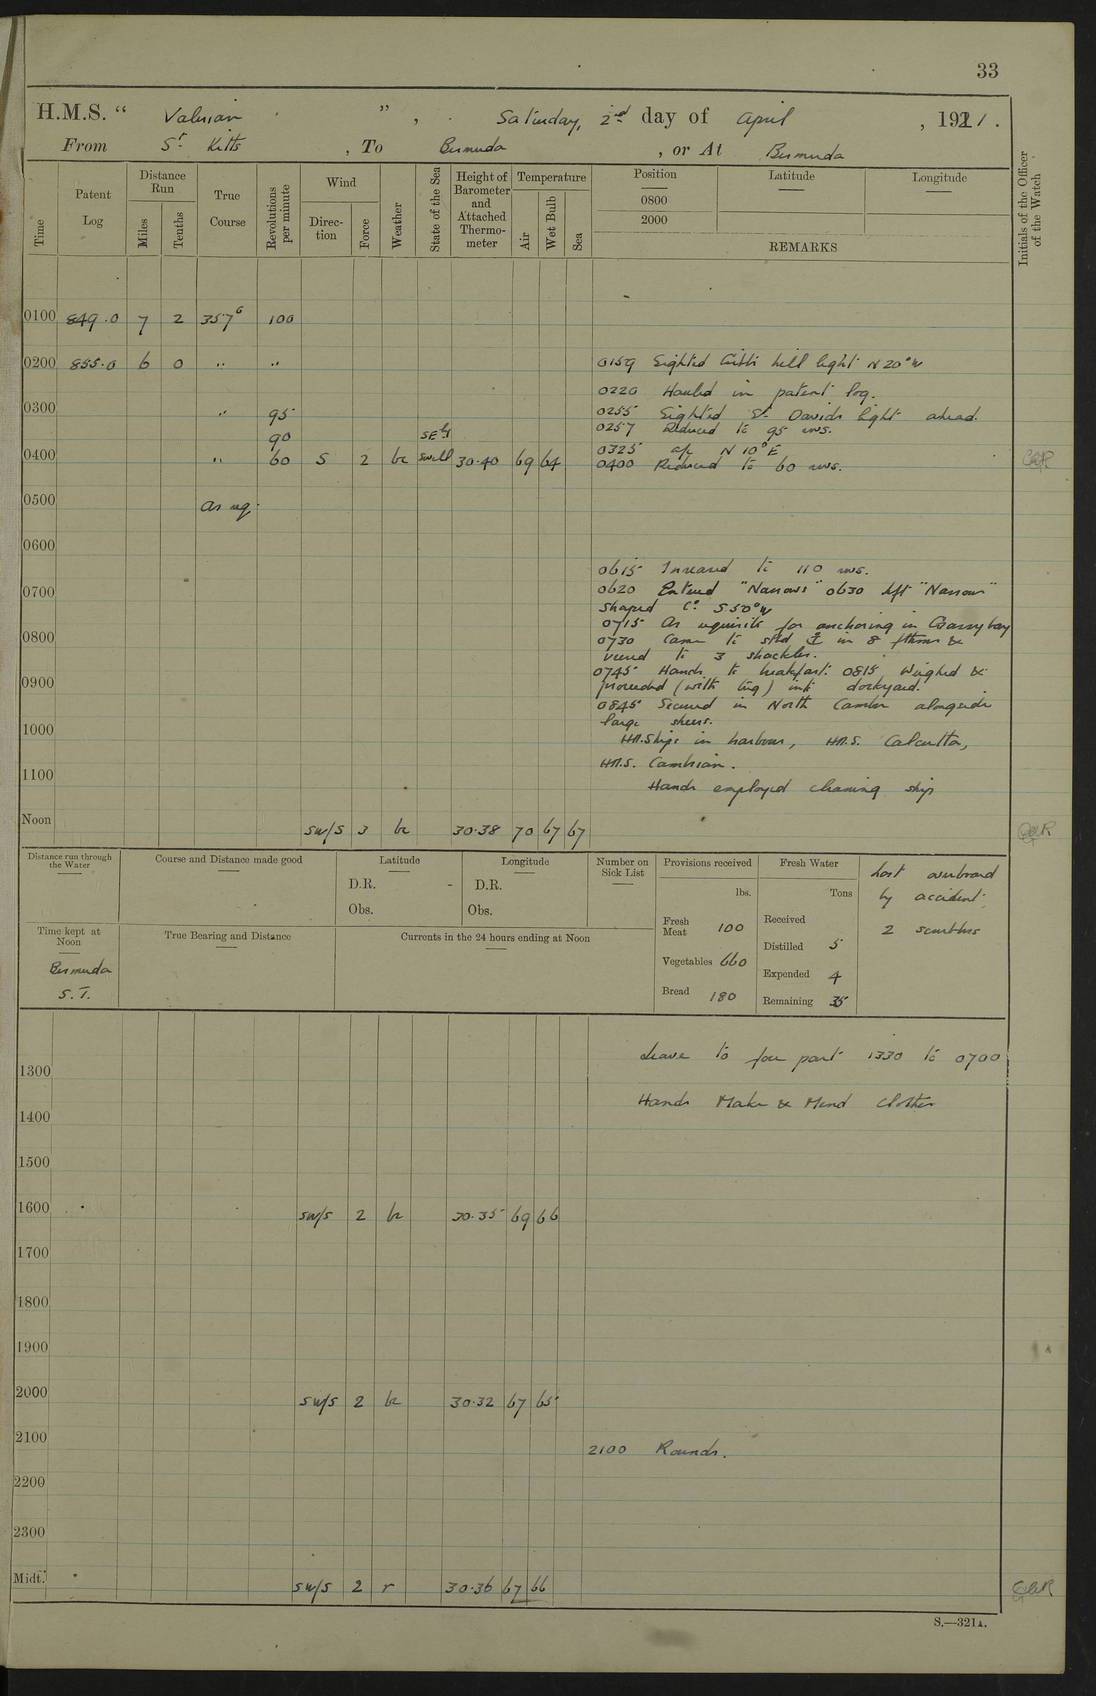 33
H.M.S. " Valerian " , Saturday, 2nd day of April , 1921.
From St Kitts , To Bermuda , or At Bermuda
Time
Patent Log
Distance Run
Miles
Tenths
True Course
Revolutions per minute
Wind
Direction
Force
Weather
State of the Sea
Height of Barometer and Attached Thermometer
Temperature
Air
Wet Bulb
Sea
Position
0800
2000
Latitude
Longitude
REMARKS
Initials of the Officer of the Watch
0100 849.0 7 2 357° 100
0200 855.0 6 0 " " 0159 Sighted Gibbs hill light N 20° W
0220 Hauled in patent log.
0300 " 95 0255 Sighted St Davids light ahead.
0257 Reduced to 95 revs.
90 SEly
0325 a/c N 10° E
0400 " 60 S 2 bc swell 30.40 69 64 0400 Reduced to 60 revs.
0500 As req.
0600
0615 Increased to 110 revs.
0700 0620 Entered "Narrows" 0630 left "Narrows"
Shaped Co. S 50° W
0715 As requisite for anchoring in Grassy bay
0800 0730 Came to stbd ⚓ in 8 fthms &
veered to 3 shackles.
0745 Hands to breakfast. 0815 Weighed &
0900 proceeded (with tug) into dockyard.
0845 Secured in North Camber alongside
large sheers.
1000 HM.Ships in harbour, HM.S. Calcutta,
HM.S. Cambrian.
1100 Hands employed cleaning ship
Noon SW/S 3 bc 30.38 70 67 67
Distance run through the Water
Course and Distance made good
Latitude
D.R.
Obs.
Longitude
D.R.
Obs.
Number on Sick List
Provisions received
lbs.
Fresh Meat 100
Vegetables 660
Bread 180
Fresh Water
Tons
Received
Distilled 5
Expended 4
Remaining 35
Lost overboard
by accident.
2 scrubbers
Time kept at Noon
Bermuda
S.T.
True Bearing and Distance
Currents in the 24 hours ending at Noon
Leave to four part 1330 to 0700
1300
Hands Make & Mend Clothes
1400
1500
1600 SW/S 2 bc 30.35 69 66
1700
1800
1900
2000 SW/S 2 bc 30.32 67 65
2100 2100 Rounds.
2200
2300
Midt. SW/S 2 r 30.36 67 66
S.—321A.